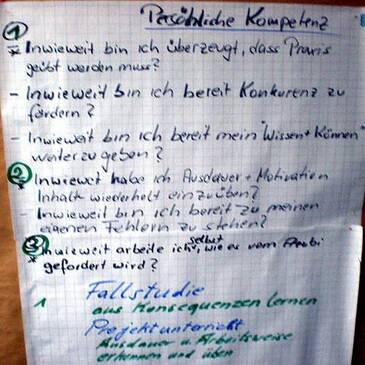 Persönliche Kompetenz
① * Inwieweit bin ich überzeugt, dass Praxis
geübt werden muss?
- Inwieweit bin ich bereit Konkurenz zu
fördern?
- Inwieweit bin ich bereit mein "Wissen + Können"
weiterzugeben?
② * Inwieweit habe ich Ausdauer + Motivation
Inhalte wiederholt einzuüben?
- Inwieweit bin ich bereit zu meinen
eigenen Fehlern zu stehen?
③ * Inwieweit arbeite ich selbst, wie es vom Azubi
gefordert wird?
Fallstudie
1 aus Konsequenzen lernen
Projektunterricht
Ausdauer u. Arbeitsweise
erkennen und üben